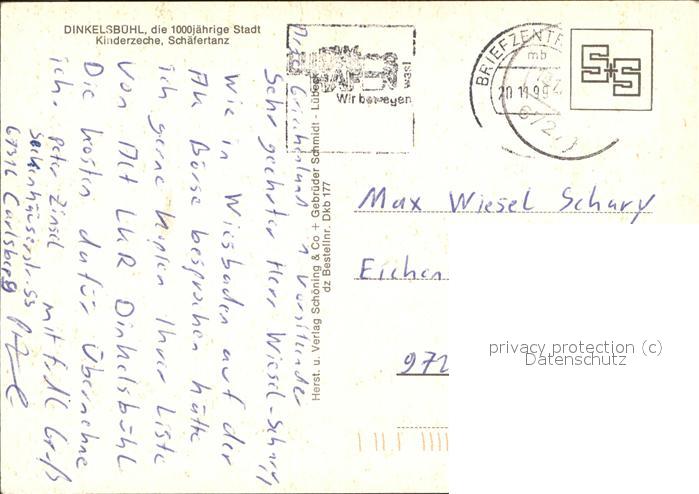 DINKELSBÜHL, die 1000jährige Stadt
Kinderzeche, Schäfertanz
was!
Wir bewegen
BRIEFZENTR
mb
20.11.99
Herst. u. Verlag Schöning & Co + Gebrüder Schmidt - Lübeck
dz Bestellnr. Dkb 177
Max Wiesel Schary
Eichen
972
Sehr geehrter Herr Wiesel-Schary,
Wie in Wiesbaden auf der
AK Börse besprochen hätte
ich gerne Kopien Ihrer Liste
von Alt LKR Dinkelsbühl
Die Kosten dafür Übernehme
ich. mit Gruß
Peter Zinsel
67316 Carlsberg
privacy protection (c)
Datenschutz